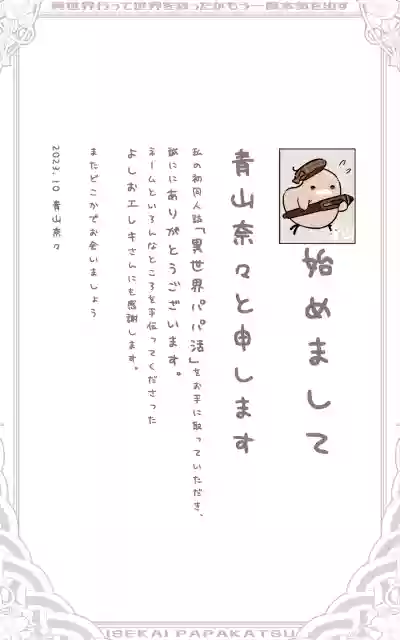 異世界行って世界を救ったからもう一度本気を出す
始めまして
青山奈々と申します
私の初同人誌「異世界パパ活」をお手に取っていただき、
誠ににありがとうございます。
ネームといろんなところを手伝ってくださった
よしおエレキさんにも感謝します。
またどこかでお会いましょう
2023.10 青山奈々
ISEKAI PAPAKATSU